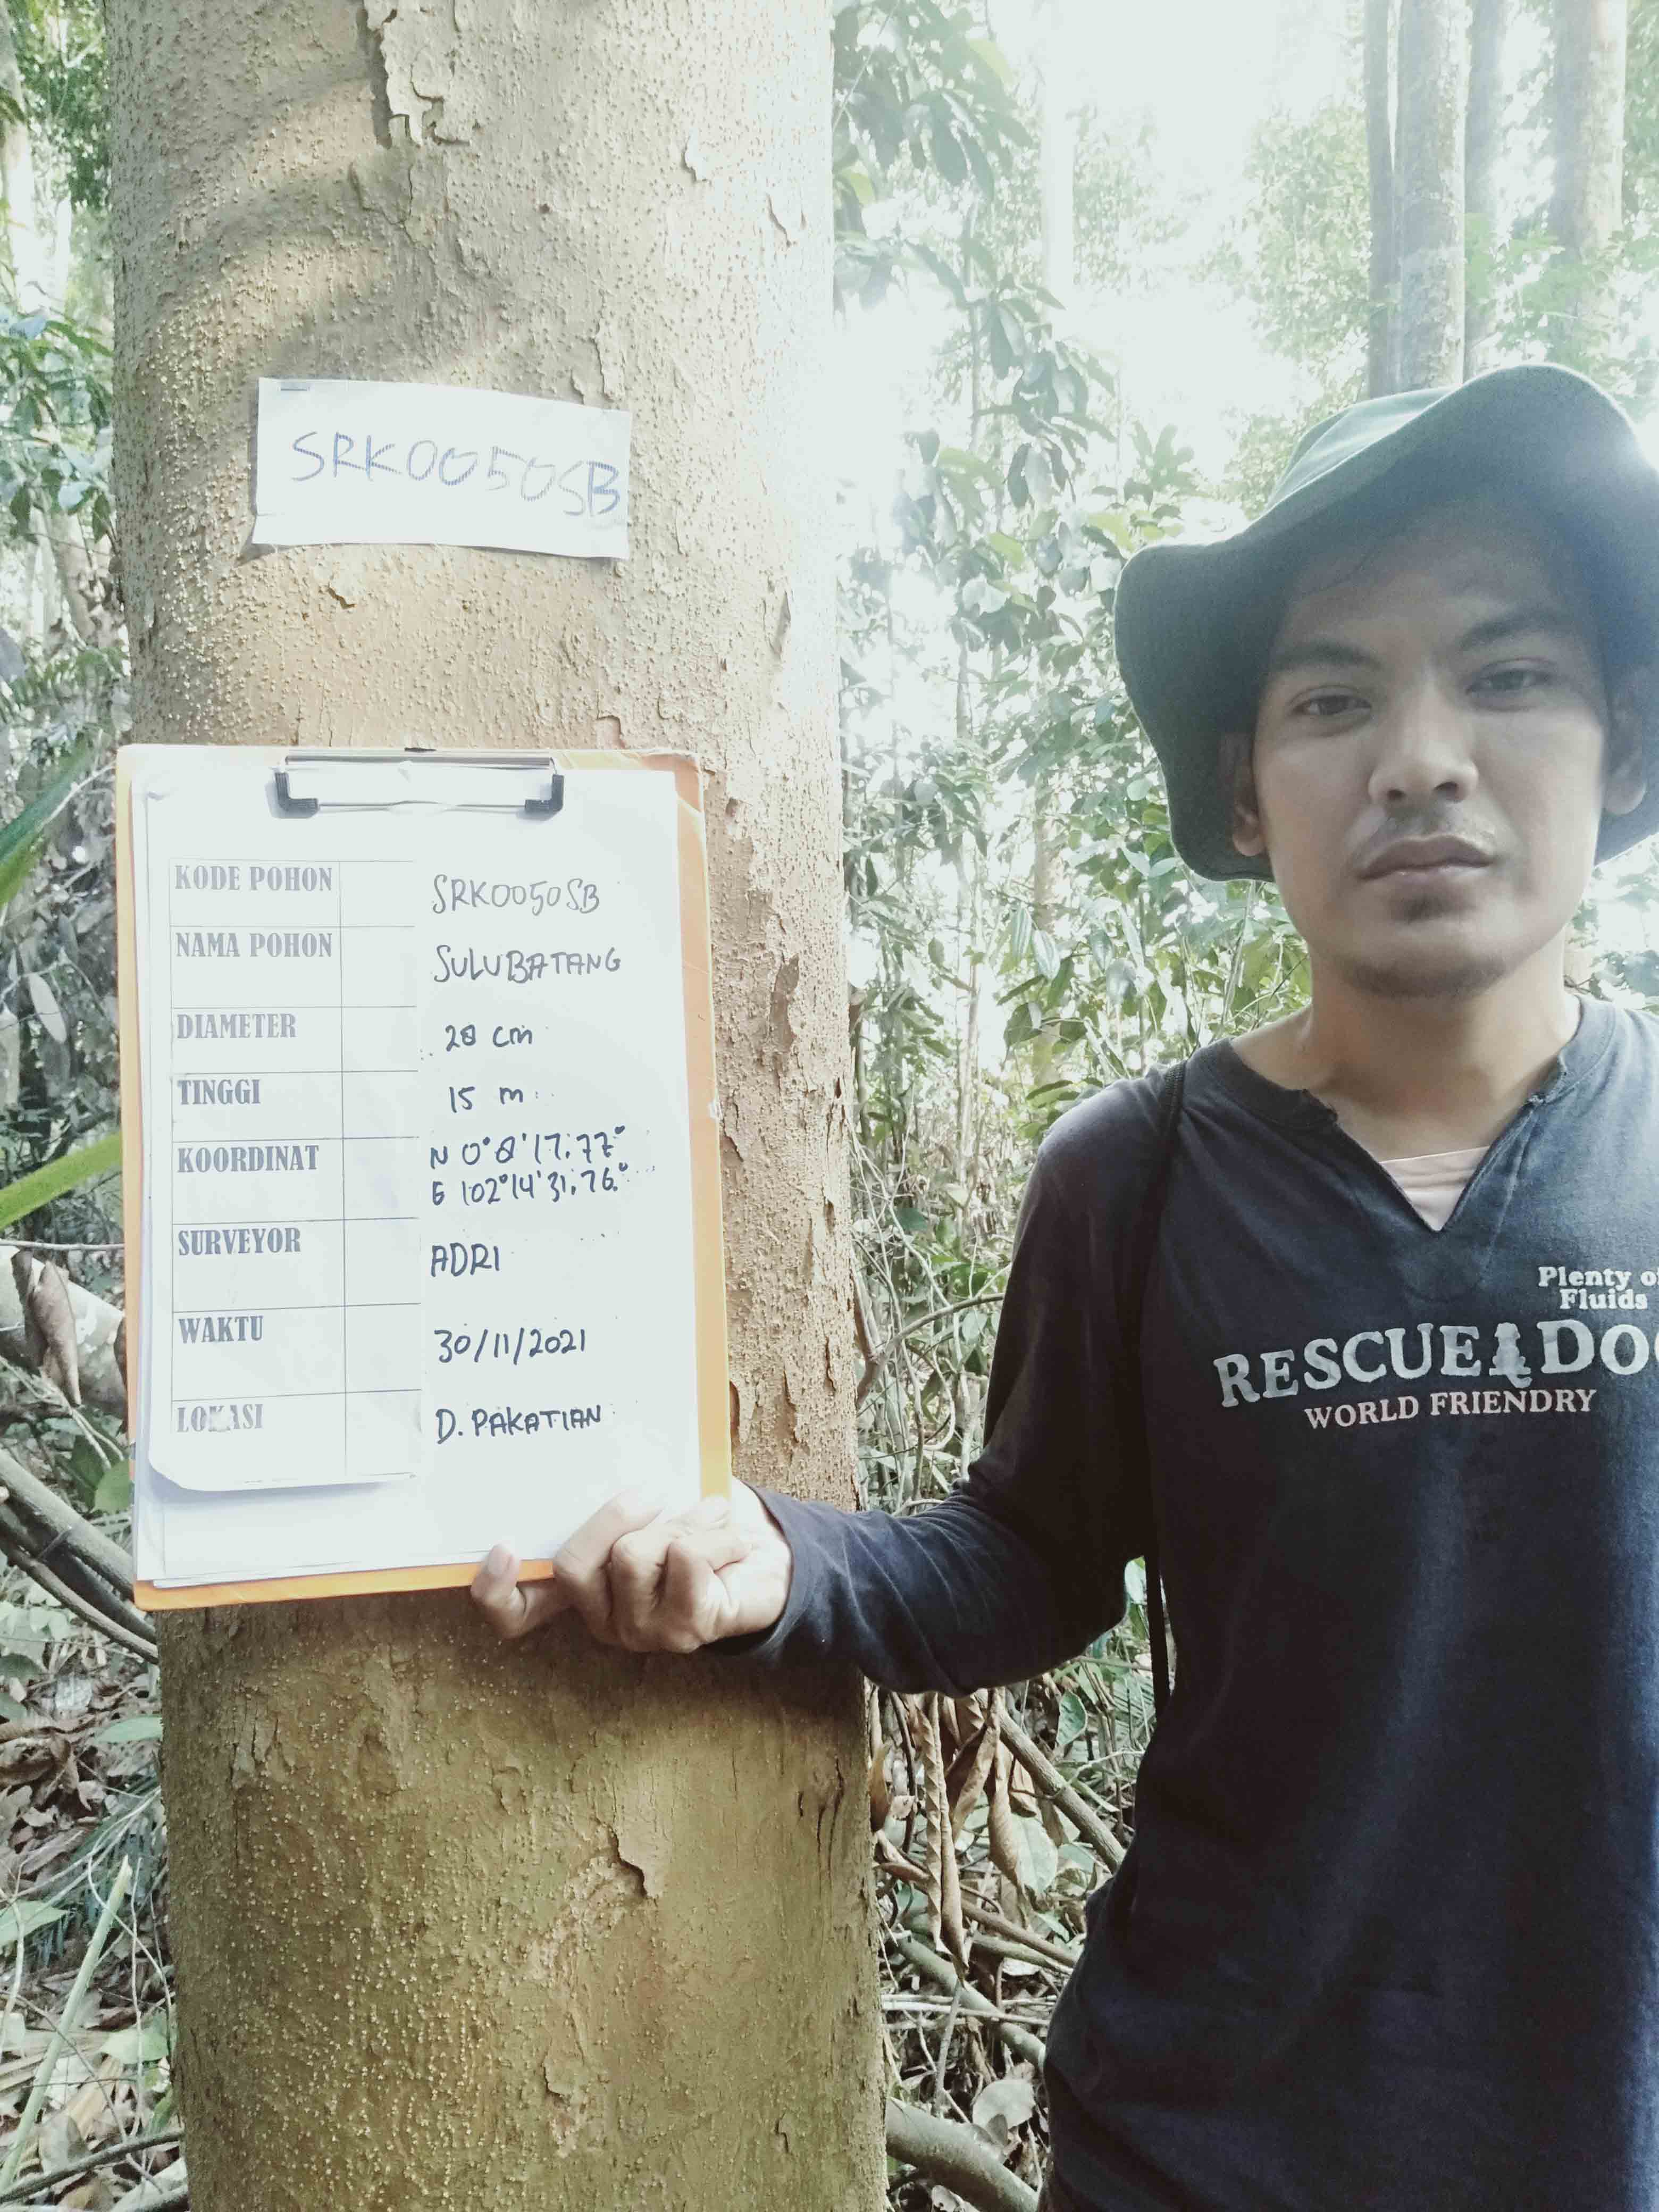 SRK0050SB
KODE POHON SRK0050SB
NAMA POHON SULUBATANG
DIAMETER 28 cm
TINGGI 15 m
KOORDINAT N 0°8'17.77"
E 102°14'31.76"
SURVEYOR ADRI
WAKTU 30/11/2021
LOKASI D. PAKATIAN
Plenty of
Fluids
RESCUE DO
WORLD FRIENDRY